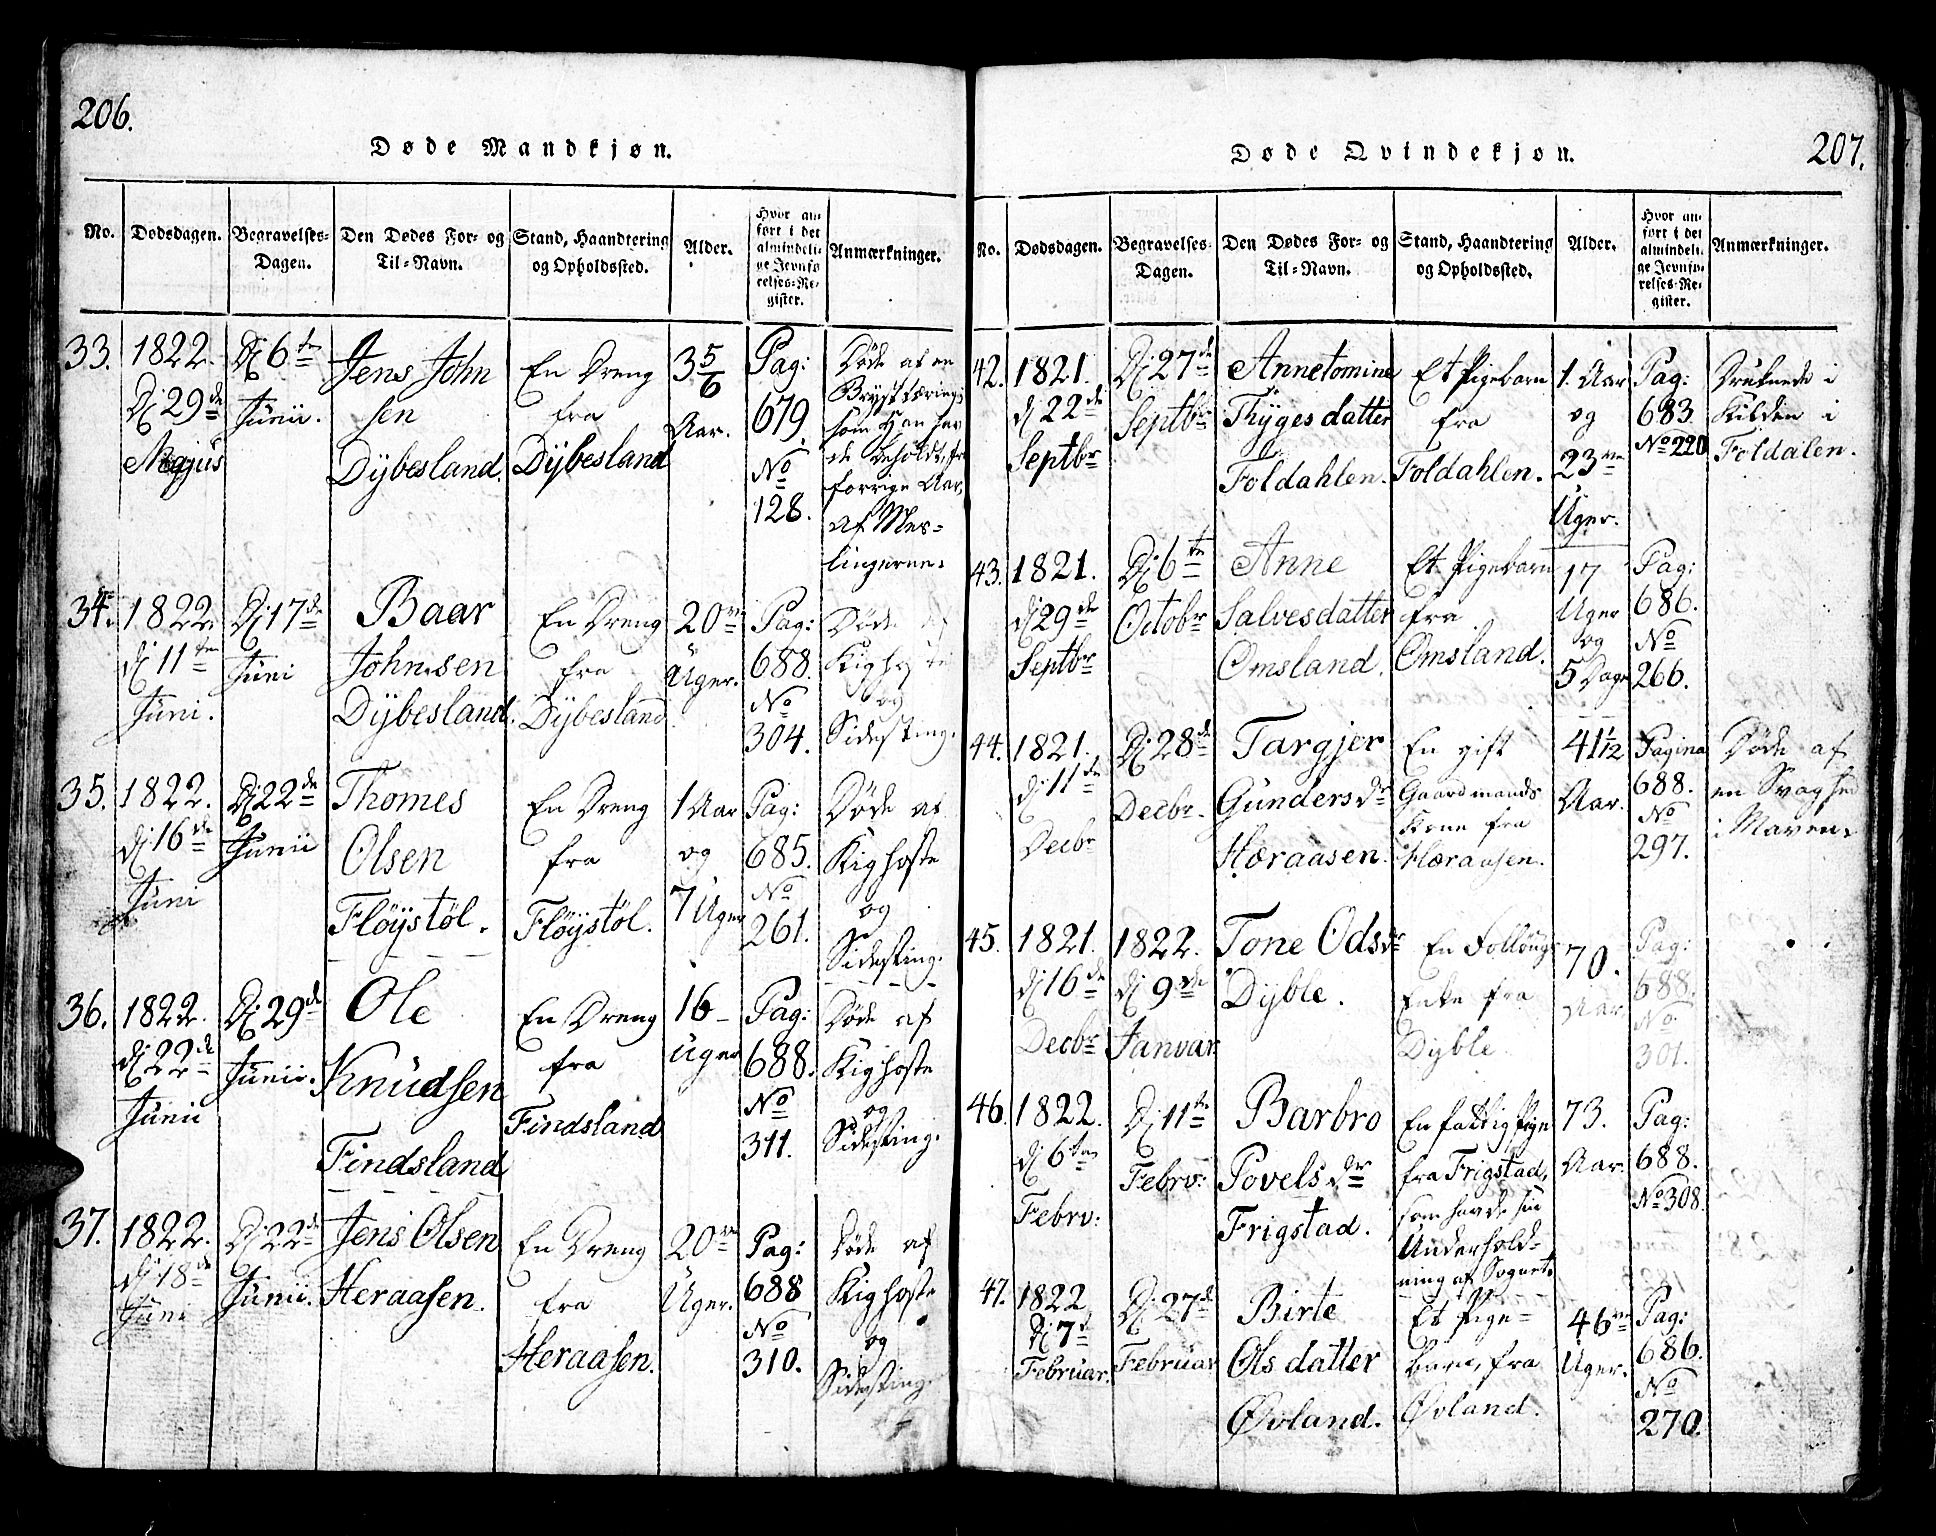 206.
Døde Mandkjøn.
No.
Dødsdagen.
Begravelses-
Dagen.
Den Dødes For- og
Til-Navn.
Stand, Haandtering
og Opholdssted.
Alder.
Hvor an-
ført i det
almindeli-
ge Jevnfø-
relses-Re-
gister.
Anmærkninger.
33.
1822.
Dj 29de
Majus
Dj 6te
Junii.
Jens John
sen
Dÿbesland.
En Dreng
fra
Dÿbesland
3 5/6
Aar.
Pag:
679.
No
128.
Døde af en
Bryst tæring,
som Han hav
de beholdt, fra
forrige Aar,
af Mes=
lingerne.
34.
1822.
dj 11te
Juni.
Dj 17de
Juni
Baar
Johnsen
Dÿbesland.
En Dreng
fra
Dÿbesland.
20ve
Uger.
Pag:
688.
No
304.
Døde af
Kighoste
og
Sidesting.
35.
1822.
dj 16de
Juni
Dj 22de
Junii
Thomes
Olsen
Fløystøl.
En Dreng
fra
Fløystøl.
1 Aar
og
7 Uger
Pag:
685.
No
261.
Døde af
Kighoste
og
Sidesting.
36.
1822.
dj 22de
Junii
Dj 29de
Junii.
Ole
Knudsen
Findsland
En Dreng
fra
Findsland
16
Uger
Pag:
688.
No
311.
Døde af
Kighoste
og
Sidesting.
37.
1822.
dj 18de
Juni
Dj 22de
Junii.
Jens Olsen
Heraasen.
En Dreng
fra
Heraasen.
20ve
Uger.
Pag:
688
No
310.
Døde af
Kighoste
og
Sidesting.
207.
Døde Qvindekjøn.
No.
Dødsdagen.
Begravelses-
Dagen.
Den Dødes For- og
Til-Navn.
Stand, Haandtering
og Opholdssted.
Alder.
Hvor an-
ført i det
almindeli-
ge Jevnfø-
relses-Re-
gister.
Anmærkninger.
42.
1821.
dj 22de
Septbr
Dj 27de
Septbr
Annetomine
Thyges datter
Foldahlen.
Et Pigebarn
fra
Foldahlen.
1. Aar
og
23ve
Uger.
Pag:
683.
No 220
Druknede i
Kilden i
Foldalen.
43.
1821.
dj 29de
Septbr
Dj 6te
Octobr
Anne
Salvesdatter
Omsland.
Et Pigebarn
fra
Omsland.
17
Uger
og
5 Dage
Pag:
686.
No
266.
44.
1821.
dj 11te
Decbr
Dj 28de
Decbr.
Targjer
Gunders dr
Hæraasen.
En gift
Gaardmands
Kone fra
Hæraasen.
41 1/12
Aar.
Pagina
688.
No
297.
Døde af
en Svaghed
i Maven.
45.
1821.
dj 16de
Decbr
1822.
dj 9de
Januar
Tone Ods dr
Dyble.
En
Enke fra
Dyble
70.
Aar.
Pag:
688.
No
301.
46.
1822.
dj 6te
Febrv:
Dj 11te
Febrv:
Barbro
Povels dr
Frigstad.
En fattig Pige
fra Frigstad,
som havde sin
Underhold=
ning af Sognet.
73.
Aar.
Pag:
688.
No 308.
47.
1822
Dj 7de
Februar.
Dj 27de
Februar
Birte
Ols datter
Øvland.
Et Pige=
barn, fra
Øvland.
46ve
Uger.
Pag:
686.
No
270.